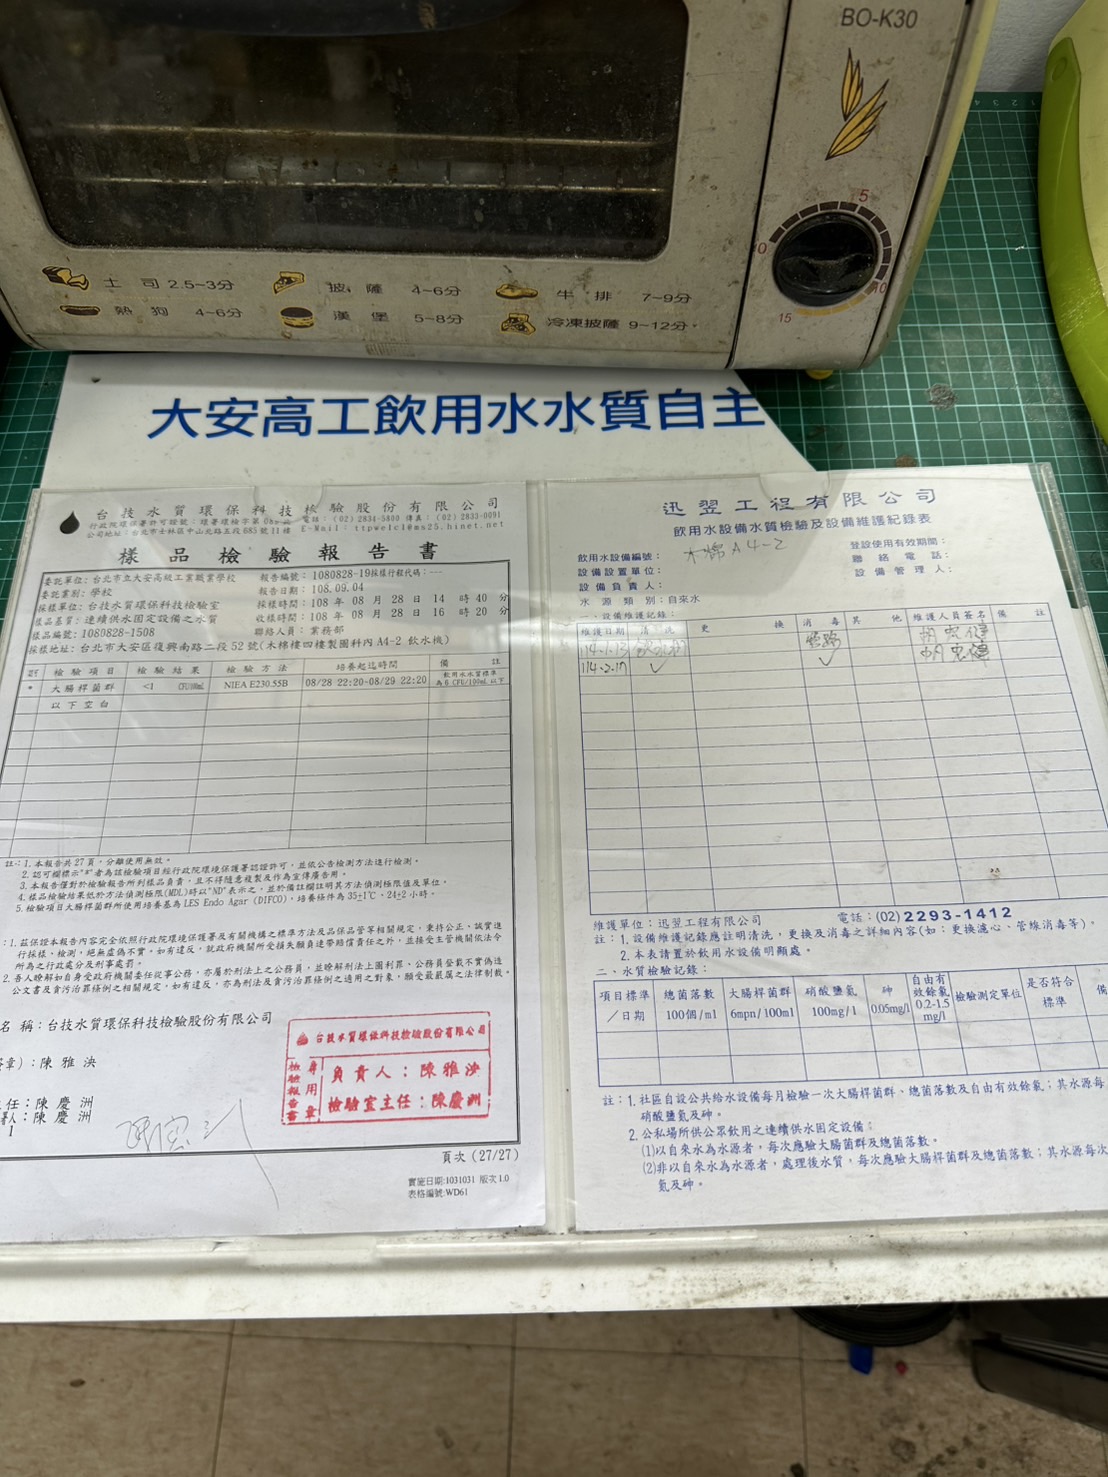 BO-K30
5
0
10
15
土司 2.5~3分
披薩 4~6分
牛排 7~9分
熱狗 4~6分
漢堡 5~8分
冷凍披薩 9~12分
大安高工飲用水水質自主
台技水質環保科技檢驗股份有限公司
電話:(02)2834-5800 傳真:(02)2833-0091
公司地址:台北市士林區中山北路五段685號11樓 E-Mail: ttpwelcl@ms25.hinet.net
樣品檢驗報告書
委託單位:台北市立大安高級工業職業學校
報告編號:1080828-19採樣行程代碼:---
委託業別:學校
報告日期:108.09.04
採樣單位:台技水質環保科技檢驗室
採樣時間:108 年 08 月 28 日 14 時 40 分
樣品基質:連續供水固定設備之水質
收樣時間:108 年 08 月 28 日 16 時 20 分
樣品編號:1080828-1508
聯絡人員:業務部
採樣地址:台北市大安區復興南路二段52號(木棉樓四樓製圖科內 A4-2 飲水機)
檢驗項目 檢驗結果 檢驗方法 培養起迄時間 備註
* 大腸桿菌群 <1 CFU/100mL NIEA E230.55B 08/28 22:20~08/29 22:20 飲用水水質標準為6 CFU/100mL以下
以下空白
註:1.本報告共27頁,分離使用無效。
2.認可欄標示"*"者為該檢驗項目經行政院環境保護署認證許可,並依公告檢測方法進行檢測。
3.本報告僅對於檢驗報告所列樣品負責,且不得隨意複製及作為宣傳廣告用。
4.樣品檢驗結果低於方法偵測極限(MDL)時以"ND"表示之,並於備註欄註明其方法偵測極限值及單位。
5.檢驗項目大腸桿菌群所使用培養基為 LES Endo Agar (DIFCO),培養條件為 35±1℃、24±2 小時。
:1.茲保證本報告內容完全依照行政院環境保護署及有關機構之標準方法及品保品管等相關規定,秉持公正、誠實進
行採樣、檢測,絕無虛偽不實。如有違反,就政府機關所受損失願負連帶賠償責任之外,並接受主管機關依法令
所為之行政處分及刑事處罰。
2.吾人瞭解如自身受政府機關委任從事公務,亦屬於刑法上之公務員,並瞭解刑法上圖利罪、公務員登載不實偽造
公文書及貪污治罪條例之相關規定,如有違反,亦為刑法及貪污治罪條例之適用之對象,願受最嚴厲之法律制裁。
名稱:台技水質環保科技檢驗股份有限公司
章):陳雅泱
任:陳慶洲
署人:陳慶洲
台技水質環保科技檢驗股份有限公司
檢驗報告書 專用章
負責人:陳雅泱
檢驗室主任:陳慶洲
頁次(27/27)
實施日期:1031031 版次1.0
表格編號:WD61
迅翌工程有限公司
飲用水設備水質檢驗及設備維護紀錄表
飲用水設備編號: 木棉A4-2
登設使用有效期間:
設備設置單位:
聯絡電話:
設備負責人:
設備管理人:
水源類別:自來水
一、設備維護記錄:
維護日期 清洗 更換 消毒 其他 維護人員簽名 備註
114-1-13 飲水機 管路
114-2-17 ✓ ✓
維護單位:迅翌工程有限公司 電話:(02)2293-1412
註:1.設備維護記錄應註明清洗,更換及消毒之詳細內容(如:更換濾心、管線消毒等)。
2.本表請置於飲用水設備明顯處。
二、水質檢驗記錄:
項目標準/日期 總菌落數 100個/ml 大腸桿菌群 6mpn/100ml 硝酸鹽氮 100mg/l 砷 0.05mg/l 自由有效餘氯 0.2-1.5 mg/l 檢驗測定單位 是否符合標準 備
註:1.社區自設公共給水設備每月檢驗一次大腸桿菌群、總菌落數及自由有效餘氯;其水源每
硝酸鹽氮及砷。
2.公私場所供公眾飲用之連續供水固定設備:
(1)以自來水為水源者,每次應驗大腸菌群及總菌落數。
(2)非以自來水為水源者,處理後水質,每次應驗大腸桿菌群及總菌落數;其水源每次
氮及砷。